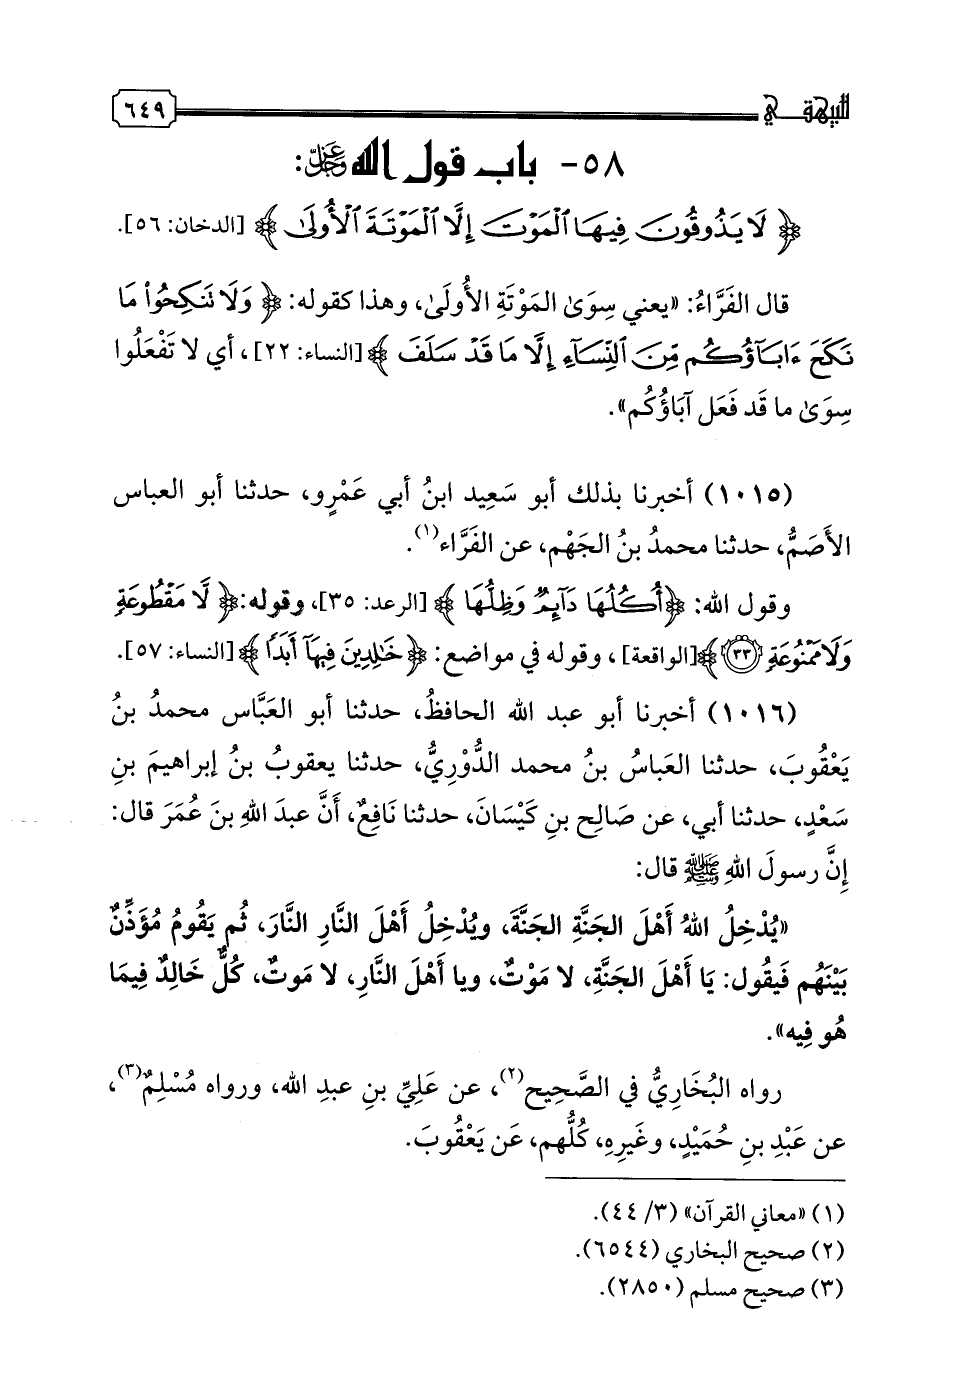 للبيهقي
٦٤٩
٥٨- باب قول الله عَزَّ وَجَلَّ:
﴿لَا يَذُوقُونَ فِيهَا الْمَوْتَ إِلَّا الْمَوْتَةَ الْأُولَى﴾ [الدخان: ٥٦].
قال الفَرَّاءُ: «يعني سِوَىٰ المَوْتَةِ الأُولَىٰ، وهذا كقوله: ﴿وَلَا تَنكِحُوا مَا
نَكَحَ ءَابَآؤُكُم مِّنَ النِّسَآءِ إِلَّا مَا قَدْ سَلَفَ﴾ [النساء: ٢٢]، أي لا تَفْعَلُوا
سِوَىٰ ما قَد فَعَل آبَاؤُكُم».
(١٠١٥) أخبرنا بذلك أبو سَعِيد ابنُ أبي عَمْرٍو، حدثنا أبو العباس
الأَصَمُّ، حدثنا محمدُ بنُ الجَهْم، عن الفَرَّاء(١).
وقول الله: ﴿أُكُلُهَا دَآئِمٌ وَظِلُّهَا﴾ [الرعد: ٣٥]، وقوله: ﴿لَّا مَقْطُوعَةٍ
وَلَا مَمْنُوعَةٍ ٣٣﴾ [الواقعة]، وقوله في مواضع: ﴿خَٰلِدِينَ فِيهَآ أَبَدًا﴾ [النساء: ٥٧].
(١٠١٦) أخبرنا أبو عبد الله الحافظُ، حدثنا أبو العَبَّاس محمدُ بنُ
يَعْقُوبَ، حدثنا العَباسُ بنُ محمد الدُّوْرِيُّ، حدثنا يعقوبُ بنُ إبراهيمَ بنِ
سَعْدٍ، حدثنا أبي، عن صَالِحِ بنِ كَيْسَانَ، حدثنا نَافِعٌ، أَنَّ عبدَ اللهِ بنَ عُمَرَ قال:
إِنَّ رسولَ اللهِ ﷺ قال:
«يُدْخِلُ اللهُ أَهْلَ الجَنَّةِ الجَنَّةَ، ويُدْخِلُ أَهْلَ النَّارِ النَّارَ، ثُم يَقُومُ مُؤَذِّنٌ
بَيْنَهُم فَيقُول: يَا أَهْلَ الجَنَّةِ، لا مَوْتٌ، ويا أَهْلَ النَّارِ، لا مَوتٌ، كُلٌّ خَالِدٌ فِيمَا
هُو فِيه».
رواه البُخَارِيُّ في الصَّحِيح(٢)، عن عَلِيِّ بنِ عبدِ الله، ورواه مُسْلِمٌ(٣)،
عن عَبْدِ بنِ حُمَيْدٍ، وغَيرِهِ، كُلُّهم، عَن يَعْقُوبَ.
(١) «معاني القرآن» (٣/ ٤٤).
(٢) صحيح البخاري (٦٥٤٤).
(٣) صحيح مسلم (٢٨٥٠).